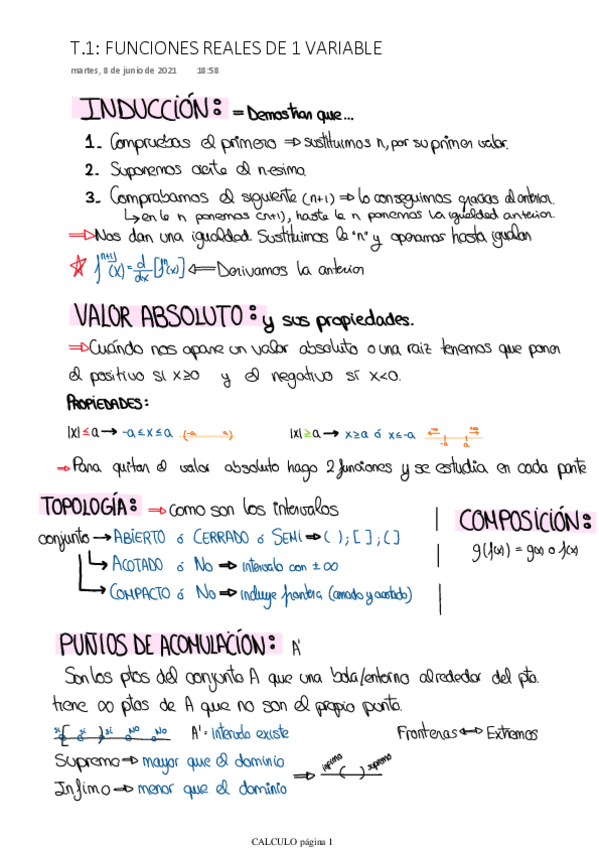 T.1: FUNCIONES REALES DE 1 VARIABLE
martes, 8 de junio de 2021 18:58
INDUCCIÓN: = Demostrar que...
1. Comprobamos el primero ⇒ sustituimos n, por su primer valor.
2. Suponemos cierto el n-esimo.
3. Comprobamos el siguiente (n+1) ⇒ lo conseguimos gracias al anterior.
↳ en le n ponemos (n+1), hasta le n ponemos la igualdad anterior.
⇒ Nos dan una igualdad. Sustituimos la "n" y operamos hasta igualar
☆ f^(n+1)(x) = d/dx [fⁿ(x)] ⇐ Derivamos la anterior
VALOR ABSOLUTO: y sus propiedades.
⇒ Cuándo nos apare un valor absoluto o una raiz tenemos que poner
el positivo si x≥0 y el negativo sí x<0.
PROPIEDADES:
|x| ≤ a → -a ≤ x ≤ a (-a a) |x| ≥ a → x≥a ó x≤-a -∞ +∞ -a a
→ Para quitar el valor absoluto hago 2 funciones y se estudia en cada parte
TOPOLOGÍA: ⇒ como son los intervalos
conjunto → ABIERTO ó CERRADO ó SEMI ⇒ ( ); [ ]; ( ]
↳ ACOTADO ó No ⇒ intervalo con ±∞
↳ COMPACTO ó No ⇒ incluye frontera (cerrado y acotado)
COMPOSICIÓN:
g(f(x)) = g(x) o f(x)
PUNTOS DE ACOMULACIÓN: A'
Son los ptos del conjunto A que una bola/entorno alrededor del pto.
tiene ∞ ptos de A que no son el propio punto.
si [ si ) si No No A' = intervalo existe Fronteras ↔ Extremos
Supremo → mayor que el dominio
⇒ infimo ( ) supremo
Infimo → menor que el dominio
CALCULO página 1